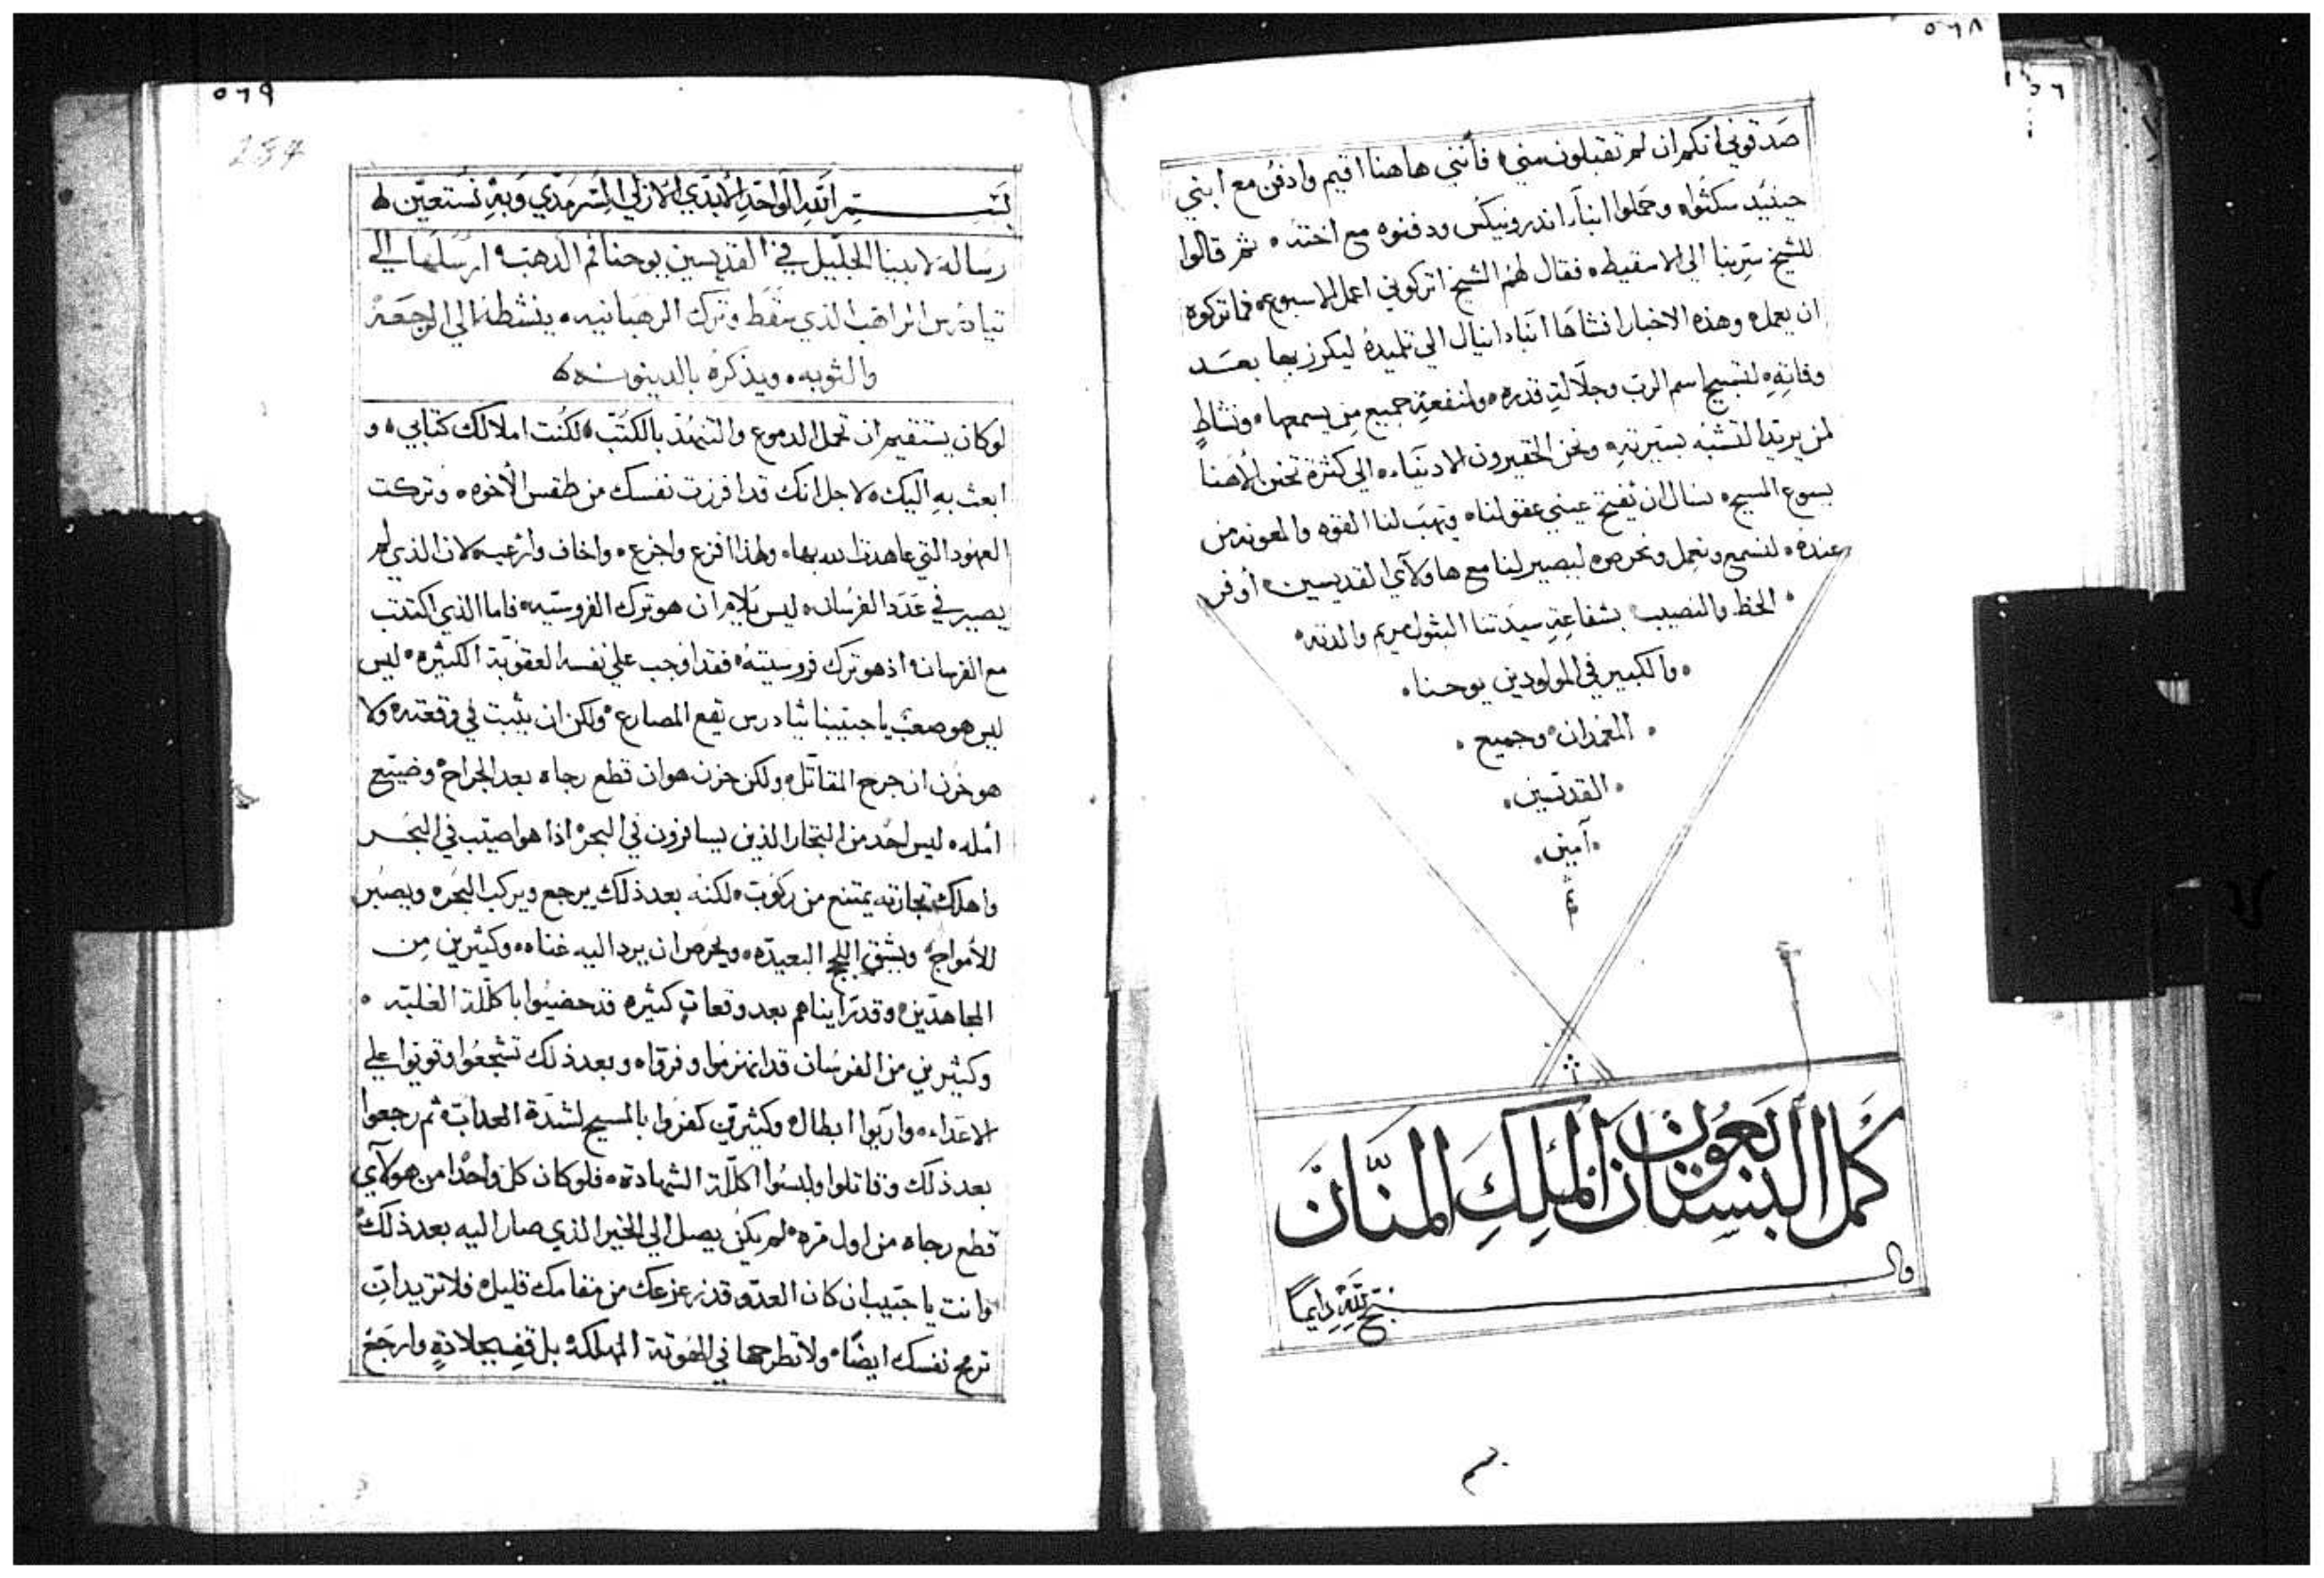 ٥٦٨
صدقوني انكم ان لم تقبلون مني، فانني هاهنا اقيم وادفن مع ابنتي
حينيد سكتوا، وحملوا انبا اندرونيكس ودفنوه مع اخته، ثم قالوا
للشيخ سر بنا الي الاسقيط، فقال لهم الشيخ اتركوني اعمل الاسبوع، فما تركوه
ان يعمله وهذه الاخبار انشاها انبا دانيال الي تلميذه ليكرز بها بعد
وفاته، لتسبيح اسم الرب وجلالة قدره، ولمنفعة جميع من يسمعها، ونشاط
لمن يريد التشبه بسيرته ونحن الحقيرون الادنياء، الي كثرة تحنن الاهنا
يسوع المسيح، نسال ان يفتح عيني عقولنا، ويهب لنا القوه والمعونه من
عنده، لنسمع ونعمل ونحرص، ليصير لنا مع هاولآي القديسين، أوفر
الحظ والنصيب، بشفاعة سيدتنا البتول مريم والدته،
،والكبير في المولودين يوحنا،
، المعمدان، وجميع ،
،القديسين،
،آمين،
كمل البستان بعون الملك المنان
والسبح لله دايماً
٥٦٩
284
بسم الله الواحد الابدي الازلي السرمدي وبه نستعين
رساله لابينا الجليل في القديسين يوحنا فم الذهب، ارسلها الي
تيادرس الراهب الذي سقط وترك الرهبانيه، ينشطه الي الرجعة
والتوبه، ويذكره بالدينونه
لو كان يستقيم ان تحمل الدموع والتنهد بالكتب، لكنت املا لك كتابي، و
ابعث به اليك، لاجل انك قد افرزت نفسك من طقس الأخوه، وتركت
العهود التي عاهدت الله بها، ولهذا افزع واجزع، واخاف وارعب، لان الذي لم
يصير في عدد الفرسان، ليس يلام ان هو ترك الفروسيه، فاما الذي اكتتب
مع الفرسان، اذ هو ترك فروسيته، فقد اوجب علي نفسه العقوبة الكثيره، ليس
ليس هو صعب يا حبيبنا تيادرس تقع المصارع، ولكن ان يثبت في وقعته، ولا
هو حزن ان جرح المقاتل، ولكن حزن هو ان قطع رجاه بعد الجراح، وضيع
أمله، ليس احد من التجار الذين يسافرون في البحر، اذا هو اصيب في البحر
واهلك تجارته يمتنع من ركوب، لكنه بعد ذلك يرجع ويركب البحر، ويصبر
للأمواج، ويشق اللجج البعيده، ويحرص ان يرد اليه غناه، وكثيرين من
المجاهدين، وقد رايناهم بعد وقعات كثيره قد حضيوا باكللة الغلبه ،
وكثيرين من الفرسان قد انهزموا وفرقا، وبعد ذلك تشجعوا وقويوا علي
الاعداء، واريوا ابطال، وكثيرين كفروا بالمسيح لشدة العداب، ثم رجعوا
بعد ذلك وقاتلوا ولبسوا اكللة الشهادة، فلو كان كل واحدا من هولآي
قطع رجاه من اول مره، لم يكن يصل الي الخير الذي صار اليه بعد ذلك
وانت يا حبيب ان كان العدو قد زعزعك من مقامك قليل، فلا تريد ان
ترمي نفسك ايضًا، ولا تطرحها في الهوتة المهلكة، بل قف بجلادةٍ وارجع